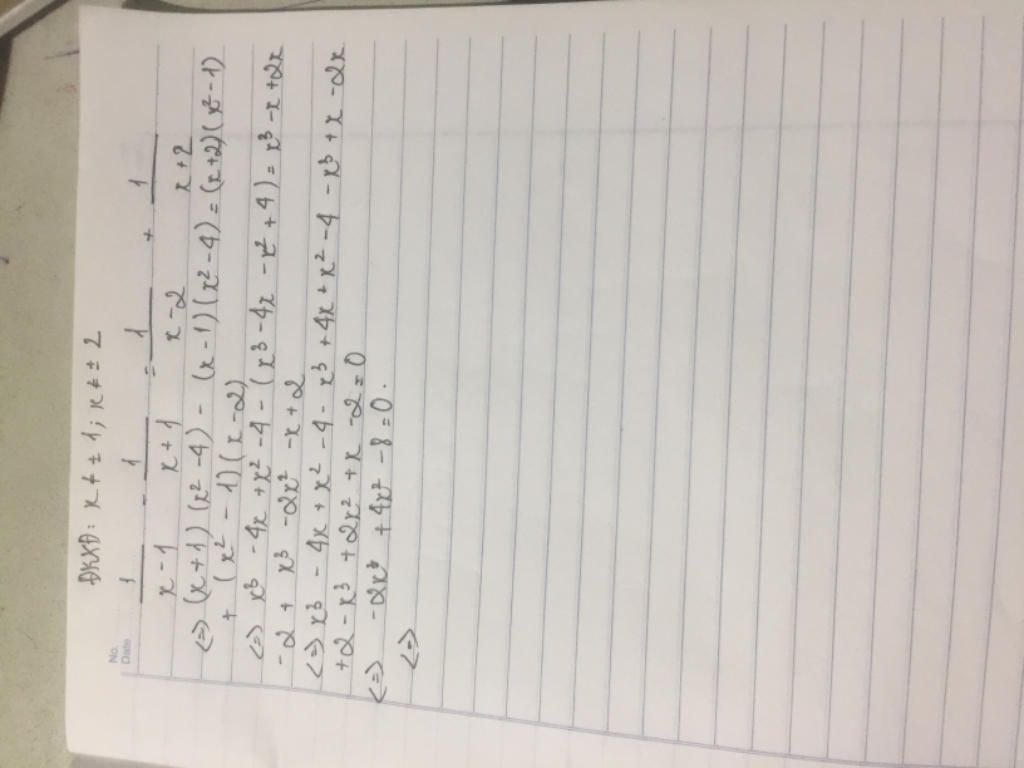 ĐKXĐ: x ≠ ± 1; x ≠ ± 2
No.
Date
1/(x - 1) - 1/(x + 1) = 1/(x - 2) + 1/(x + 2)
<=> (x + 1)(x² - 4) - (x - 1)(x² - 4) = (x + 2)(x² - 1)
+ (x² - 1)(x - 2)
<=> x³ - 4x + x² - 4 - (x³ - 4x - x² + 4) = x³ - x + 2x
- 2 + x³ - 2x² - x + 2
<=> x³ - 4x + x² - 4 - x³ + 4x + x² - 4 - x³ + x - 2x
+ 2 - x³ + 2x² + x - 2 = 0
<=> - 2x³ + 4x² - 8 = 0.
<=>